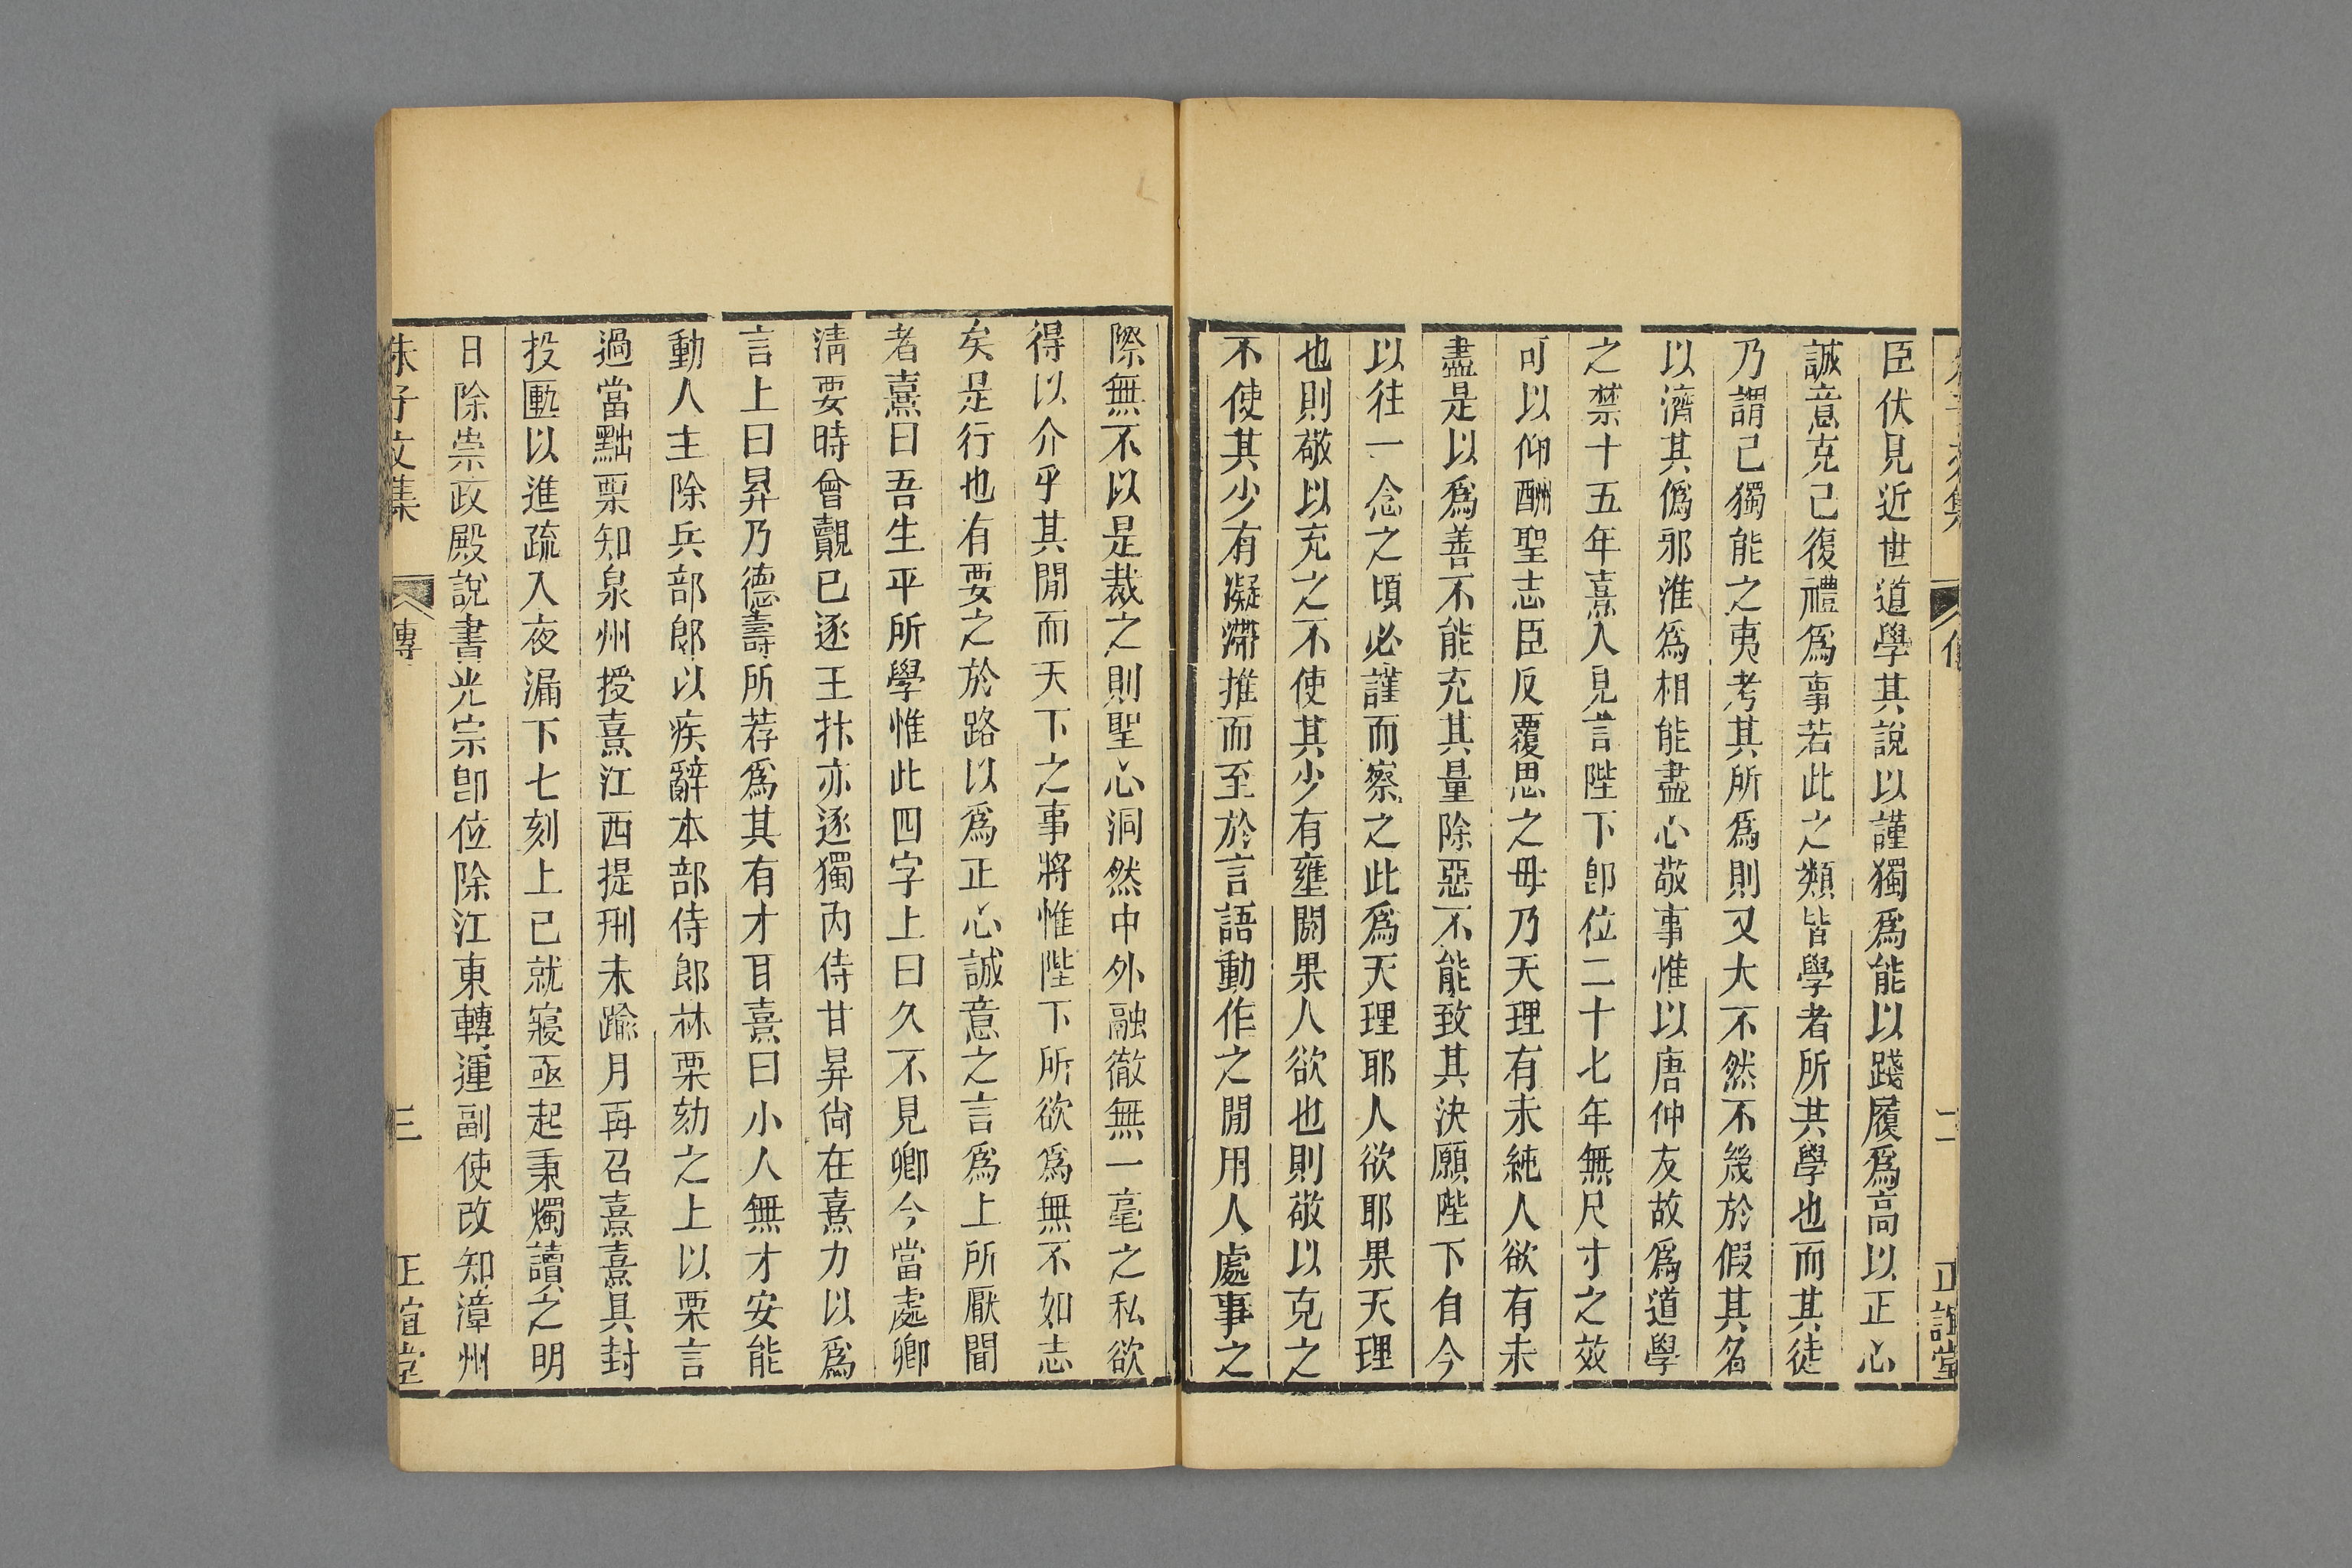 臣伏見近世道學其說以謹獨爲能以踐履爲高以正心
誠意克己復禮爲事若此之類皆學者所共學也而其徒
乃謂己獨能之夷考其所爲則又大不然不幾於假其名
以濟其僞邪淮爲相能盡心敬事惟以唐仲友故爲道學
之禁十五年熹入見言陛下卽位二十七年無尺寸之效
可以仰酬聖志臣反覆思之毋乃天理有未純人欲有未
盡是以爲善不能充其量除惡不能致其決願陛下自今
以往一念之頃必謹而察之此爲天理耶人欲耶果天理
也則敬以充之不使其少有壅閼果人欲也則敬以克之
不使其少有凝滯推而至於言語動作之閒用人處事之
際無不以是裁之則聖心洞然中外融徹無一毫之私欲
得以介乎其閒而天下之事將惟陛下所欲爲無不如志
矣是行也有要之於路以爲正心誠意之言爲上所厭聞
者熹曰吾生平所學惟此四字上曰久不見卿今當處卿
淸要時曾覿已逐王抃亦逐獨內侍甘昇尙在熹力以爲
言上曰昇乃德壽所荐爲其有才耳熹曰小人無才安能
動人主除兵部郞以疾辭本部侍郞林栗劾之上以栗言
過當黜栗知泉州授熹江西提刑未踰月再召熹熹具封
投匭以進疏入夜漏下七刻上已就寢亟起秉燭讀之明
日除崇政殿說書光宗卽位除江東轉運副使改知漳州
朱子文集 傳 三 正誼堂